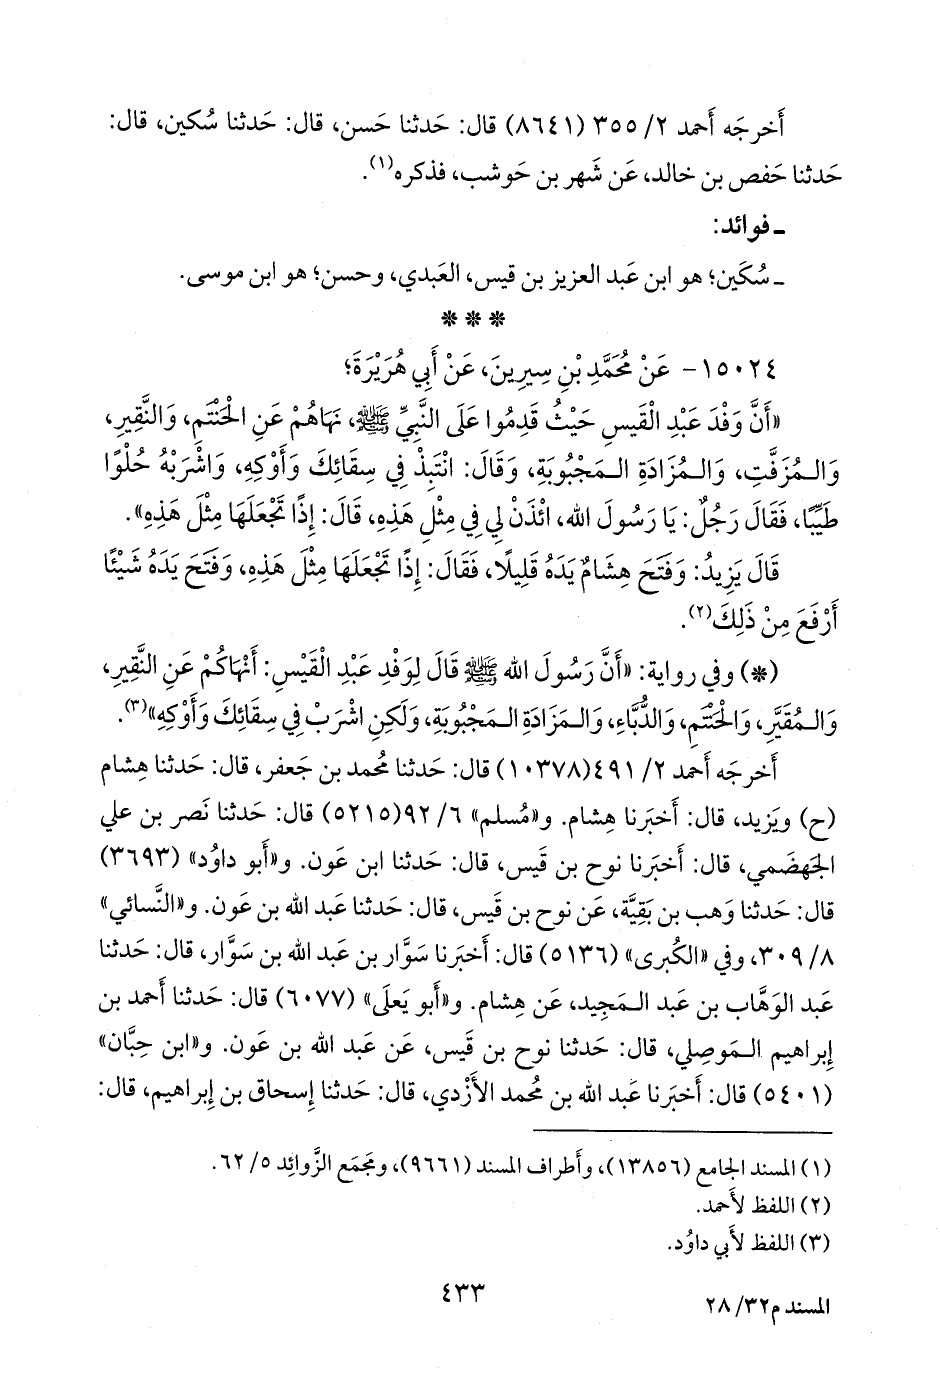 أَخرجَه أَحمد ٢/ ٣٥٥ (٨٦٤١) قال: حَدثنا حَسن، قال: حَدثنا سُكين، قال:
حَدثنا حَفص بن خالد، عَن شَهر بن حَوشب، فذكره(١).
ـ فوائد:
ـ سُكَين؛ هو ابن عَبد العزيز بن قيس، العَبدي، وحسن؛ هو ابن موسى.
* * *
١٥٠٢٤- عَنْ مُحَمَّدِ بْنِ سِيرِينَ، عَنْ أَبِي هُرَيْرَةَ؛
«أَنَّ وَفْدَ عَبْدِ الْقَيسِ حَيْثُ قَدِمُوا عَلَى النَّبِيِّ ﷺ، نَهَاهُمْ عَنِ الْحَنْتَمِ، وَالنَّقِيرِ،
وَالْـمُزَفَّتِ، وَالْـمُزَادَةِ الْـمَجْبُوبَةِ، وَقَالَ: انْتَبِذْ فِي سِقَائِكَ وَأَوْكِهِ، وَاشْرَبْهُ حُلْوًا
طَيِّبًا، فَقَالَ رَجُلٌ: يَا رَسُولَ الله، ائْذَنْ لِي فِي مِثْلِ هَذِهِ، قَالَ: إِذًا تَجْعَلَهَا مِثْلَ هَذِهِ».
قَالَ يَزِيدُ: وَفَتَحَ هِشَامٌ يَدَهُ قَلِيلًا، فَقَالَ: إِذًا تَجْعَلَهَا مِثْلَ هَذِهِ، وَفَتَحَ يَدَهُ شَيْئًا
أَرْفَعَ مِنْ ذَلِكَ(٢).
(*) وفي رواية: «أَنَّ رَسُولَ الله ﷺ قَالَ لِوَفْدِ عَبْدِ الْقَيْسِ: أَنْهَاكُمْ عَنِ النَّقِيرِ،
وَالْـمُقَيَّرِ، وَالْحَنْتَمِ، وَالدُّبَّاءِ، وَالْـمَزَادَةِ الْـمَجْبُوبَةِ، وَلَكِنِ اشْرَبْ فِي سِقَائِكَ وَأَوْكِهِ»(٣).
أَخرجَه أَحمد ٢/ ٤٩١(١٠٣٧٨) قال: حَدثنا مُحمد بن جَعفر، قال: حَدثنا هِشام
(ح) ويَزيد، قال: أَخبَرنا هِشام. و«مُسلم» ٦/ ٩٢(٥٢١٥) قال: حَدثنا نَصر بن علي
الجَهضَمي، قال: أَخبَرنا نوح بن قَيس، قال: حَدثنا ابن عَون. و«أَبو داوُد» (٣٦٩٣)
قال: حَدثنا وَهب بن بَقيَّة، عَن نوح بن قَيس، قال: حَدثنا عَبد الله بن عَون. و«النَّسائي»
٨/ ٣٠٩، وفي «الكُبرى» (٥١٣٦) قال: أَخبَرنا سَوَّار بن عَبد الله بن سَوَّار، قال: حَدثنا
عَبد الوَهَّاب بن عَبد الـمَجيد، عَن هِشام. و«أَبو يَعلَى» (٦٠٧٧) قال: حَدثنا أَحمد بن
إِبراهيم الـمَوصِلي، قال: حَدثنا نوح بن قَيس، عَن عَبد الله بن عَون. و«ابن حِبَّان»
(٥٤٠١) قال: أَخبَرنا عَبد الله بن مُحمد الأَزْدي، قال: حَدثنا إِسحاق بن إِبراهيم، قال:
(١) المسند الجامع (١٣٨٥٦)، وأَطراف المسند (٩٦٦١)، ومَجمَع الزَّوائِد ٥/ ٦٢.
(٢) اللفظ لأَحمد.
(٣) اللفظ لأَبي داوُد.
٤٣٣
المسند م٣٢/ ٢٨